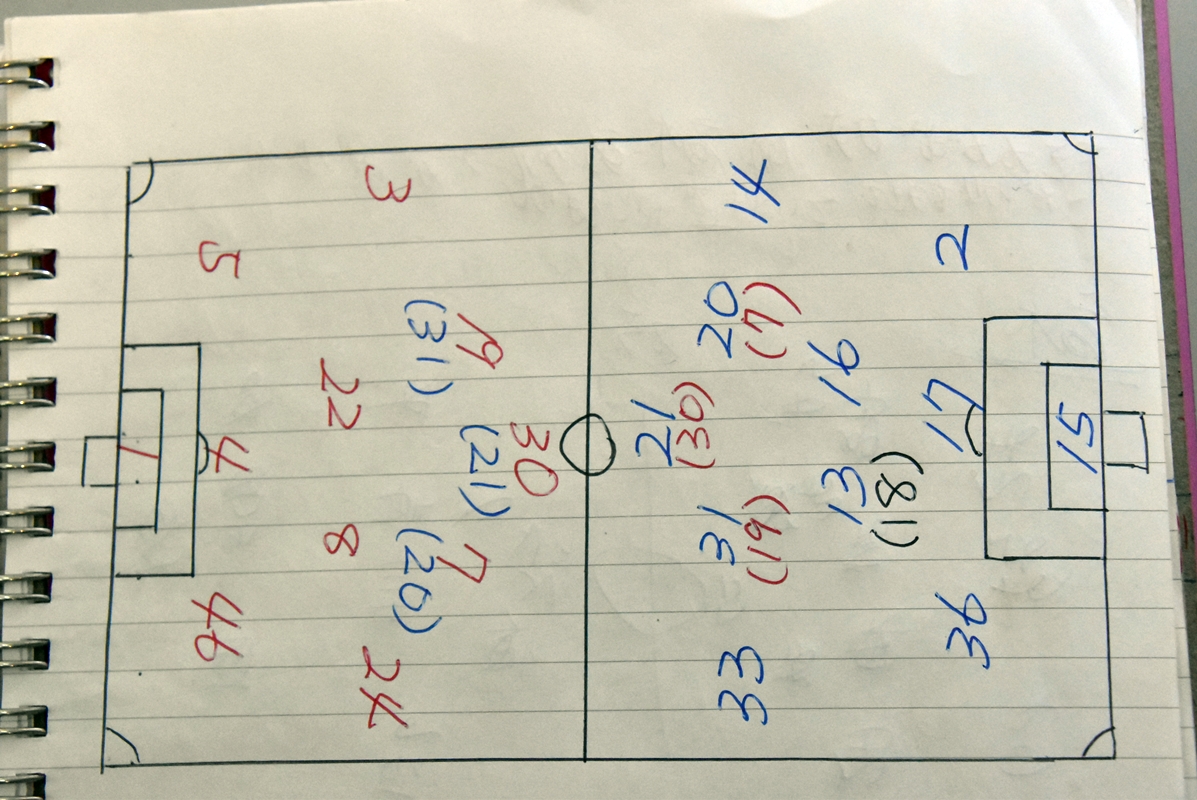 3
5
19
(31)
22
30
(21)
1
4
8
7
(20)
46
24
14
2
20
(7)
16
21
(30)
17
15
13
(18)
31
(19)
36
33